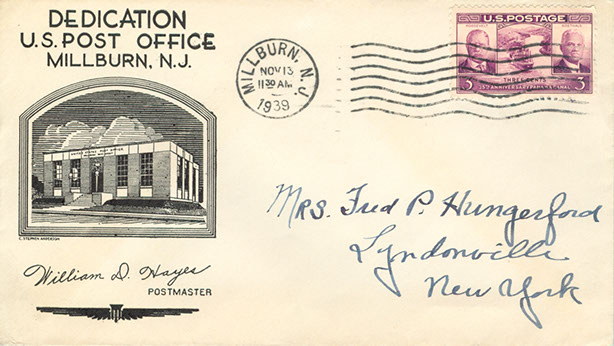 DEDICATION
U.S. POST OFFICE
MILLBURN, N.J.
MILLBURN, N.J.
NOV 13
11 30 AM
1939
U.S. POSTAGE
ROOSEVELT
GOETHALS
THREE CENTS
3 25TH ANNIVERSARY PANAMA CANAL 3
UNITED STATES POST OFFICE
C. STEPHEN ANDERSON
William D. Hayes
POSTMASTER
Mrs. Fred P. Hungerford
Lyndonville
New York